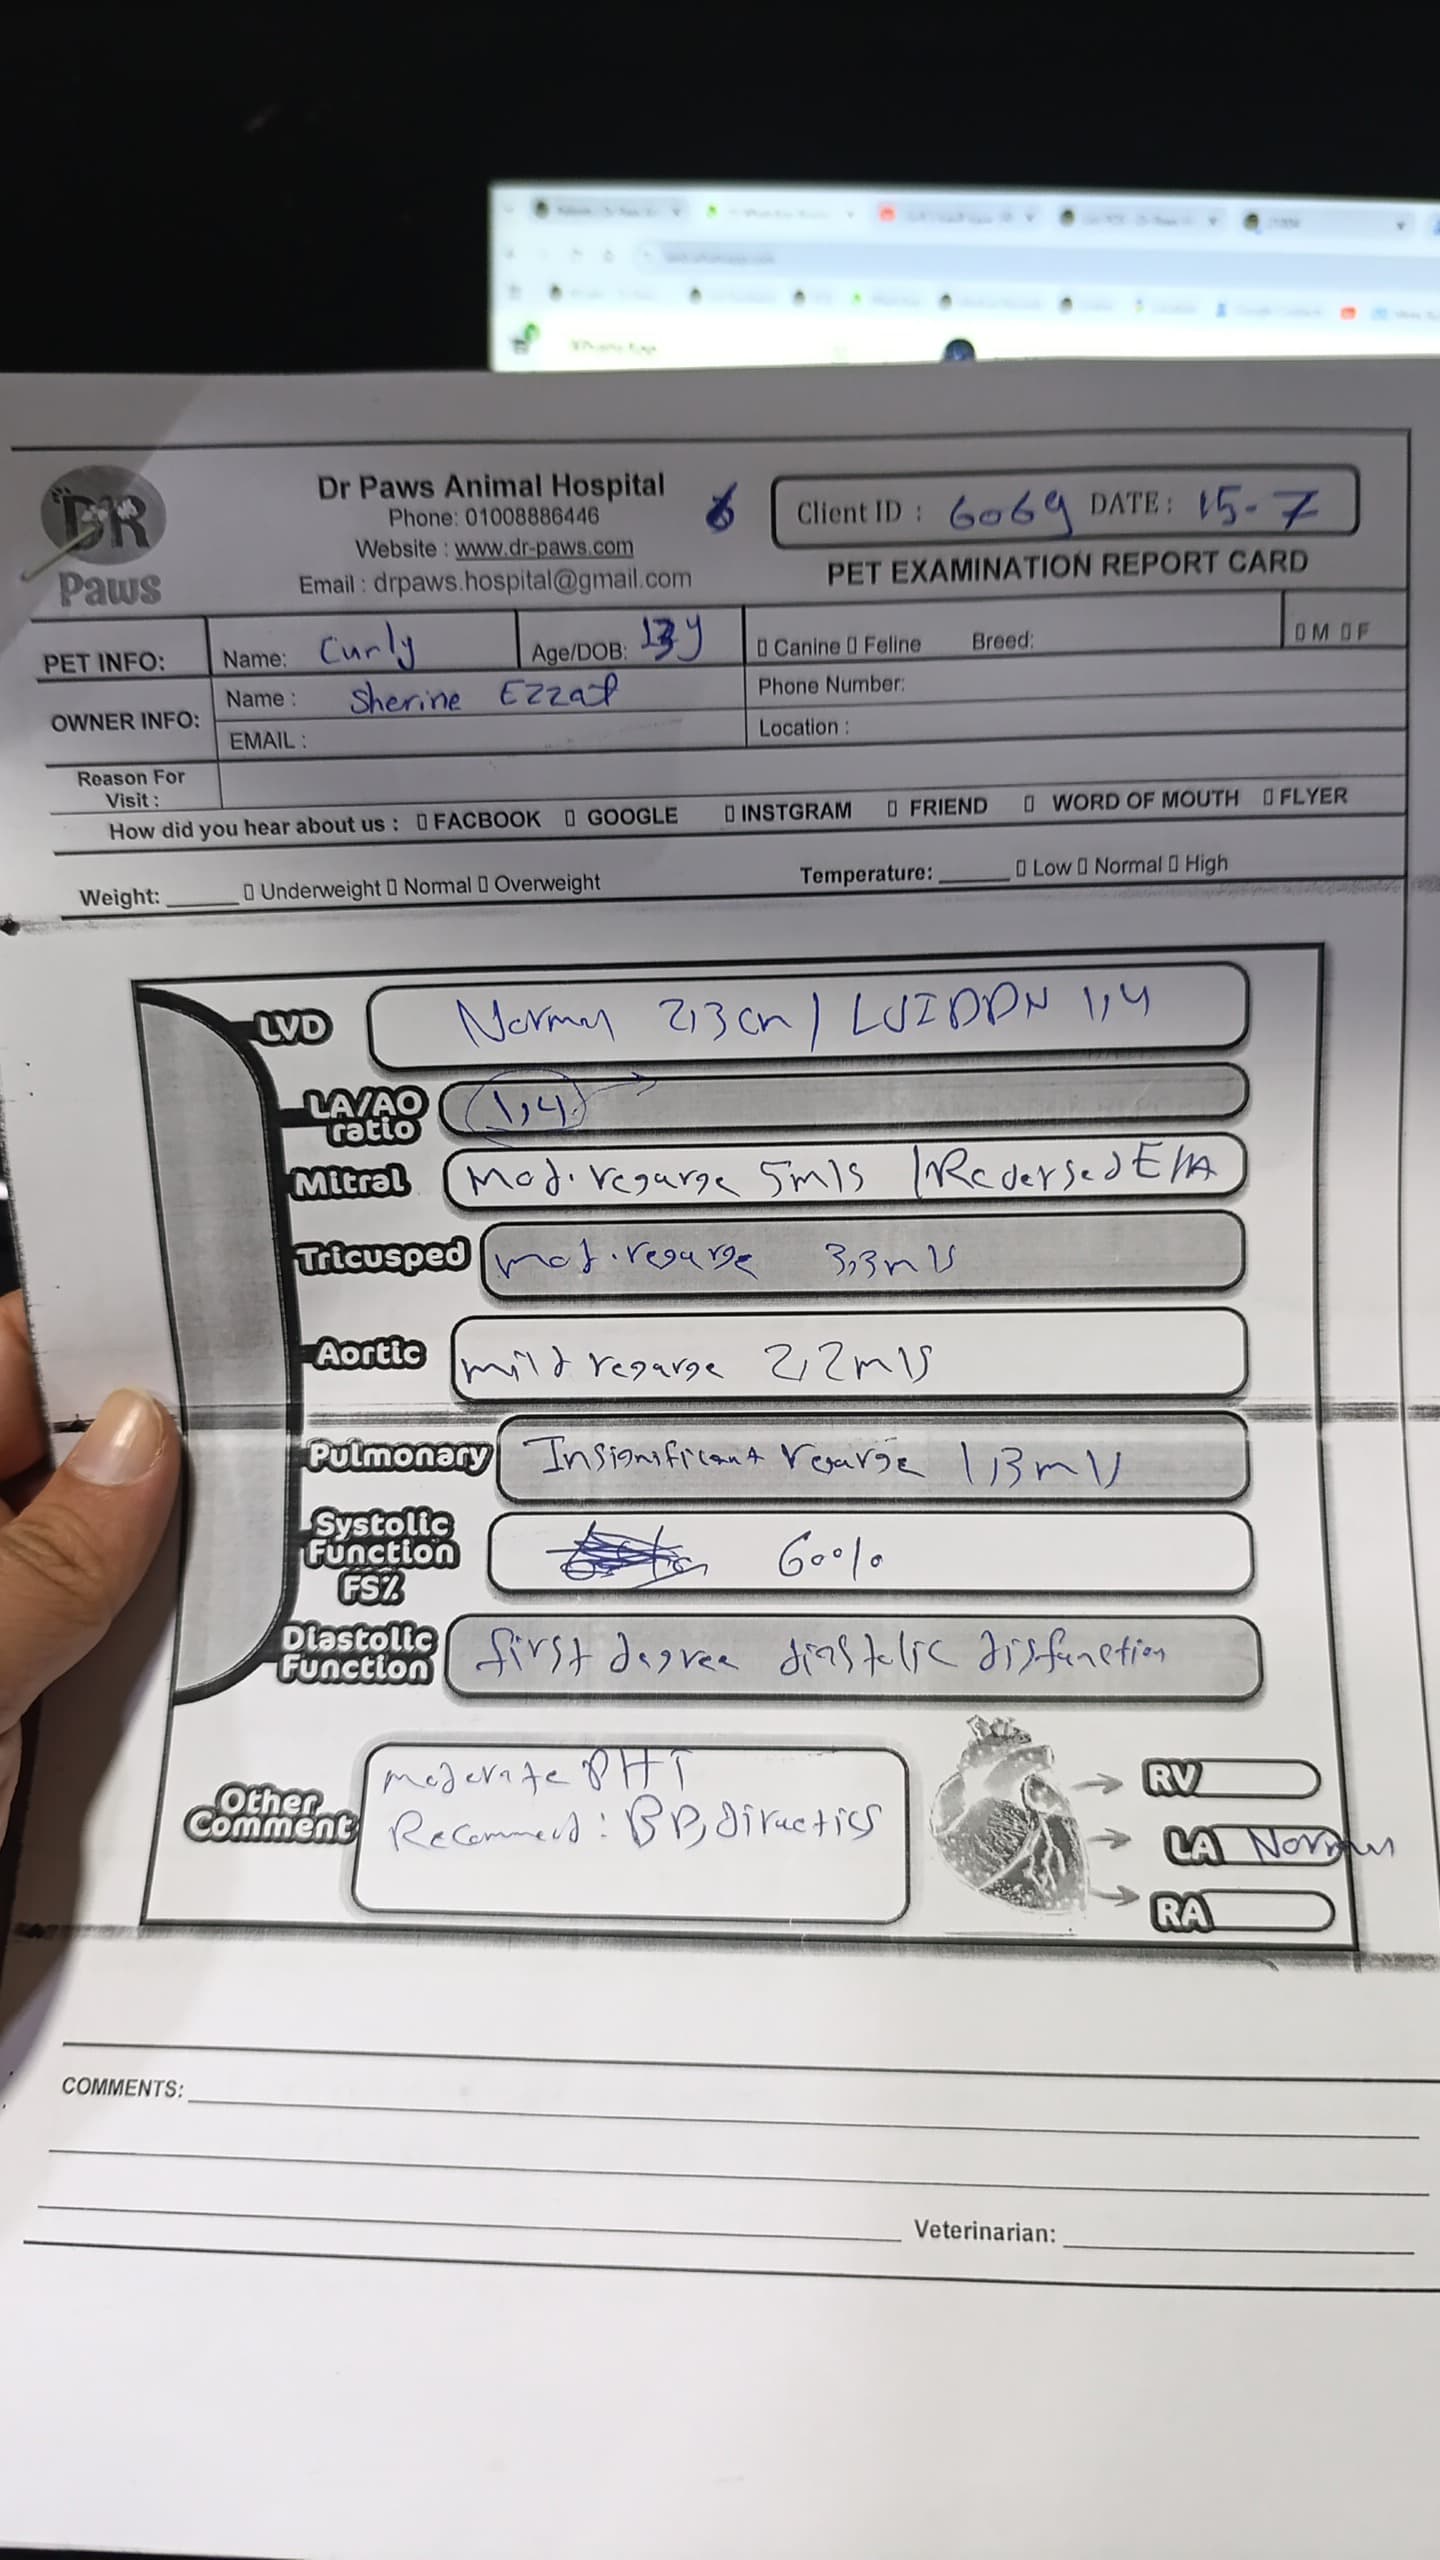 DR
Paws
Dr Paws Animal Hospital
Phone: 01008886446
Website : www.dr-paws.com
Email : drpaws.hospital@gmail.com
Client ID : 6069 DATE : 15-7
PET EXAMINATION REPORT CARD
PET INFO: Name: Curly Age/DOB: 13y Canine Feline Breed: M F
OWNER INFO: Name : Sherine Ezzat Phone Number:
EMAIL : Location :
Reason For Visit :
How did you hear about us : FACBOOK GOOGLE INSTGRAM FRIEND WORD OF MOUTH FLYER
Weight: Underweight Normal Overweight Temperature: Low Normal High
LVD Normal 2,3 cm / LVIDDN 1,4
LA/AO ratio 1,4
Mitral Mod. regurge 5m/s / Reversed E/A
Tricusped mod. regurge 3,3m/s
Aortic mild regurge 2,2m/s
Pulmonary Insignificant regurge 1,3m/s
Systolic Function FS% 60%
Diastolic Function first degree diastolic disfunction
Other Comment moderate PHT
Recommend : BP,
RV
LA Normal
RA
COMMENTS:
Veterinarian: